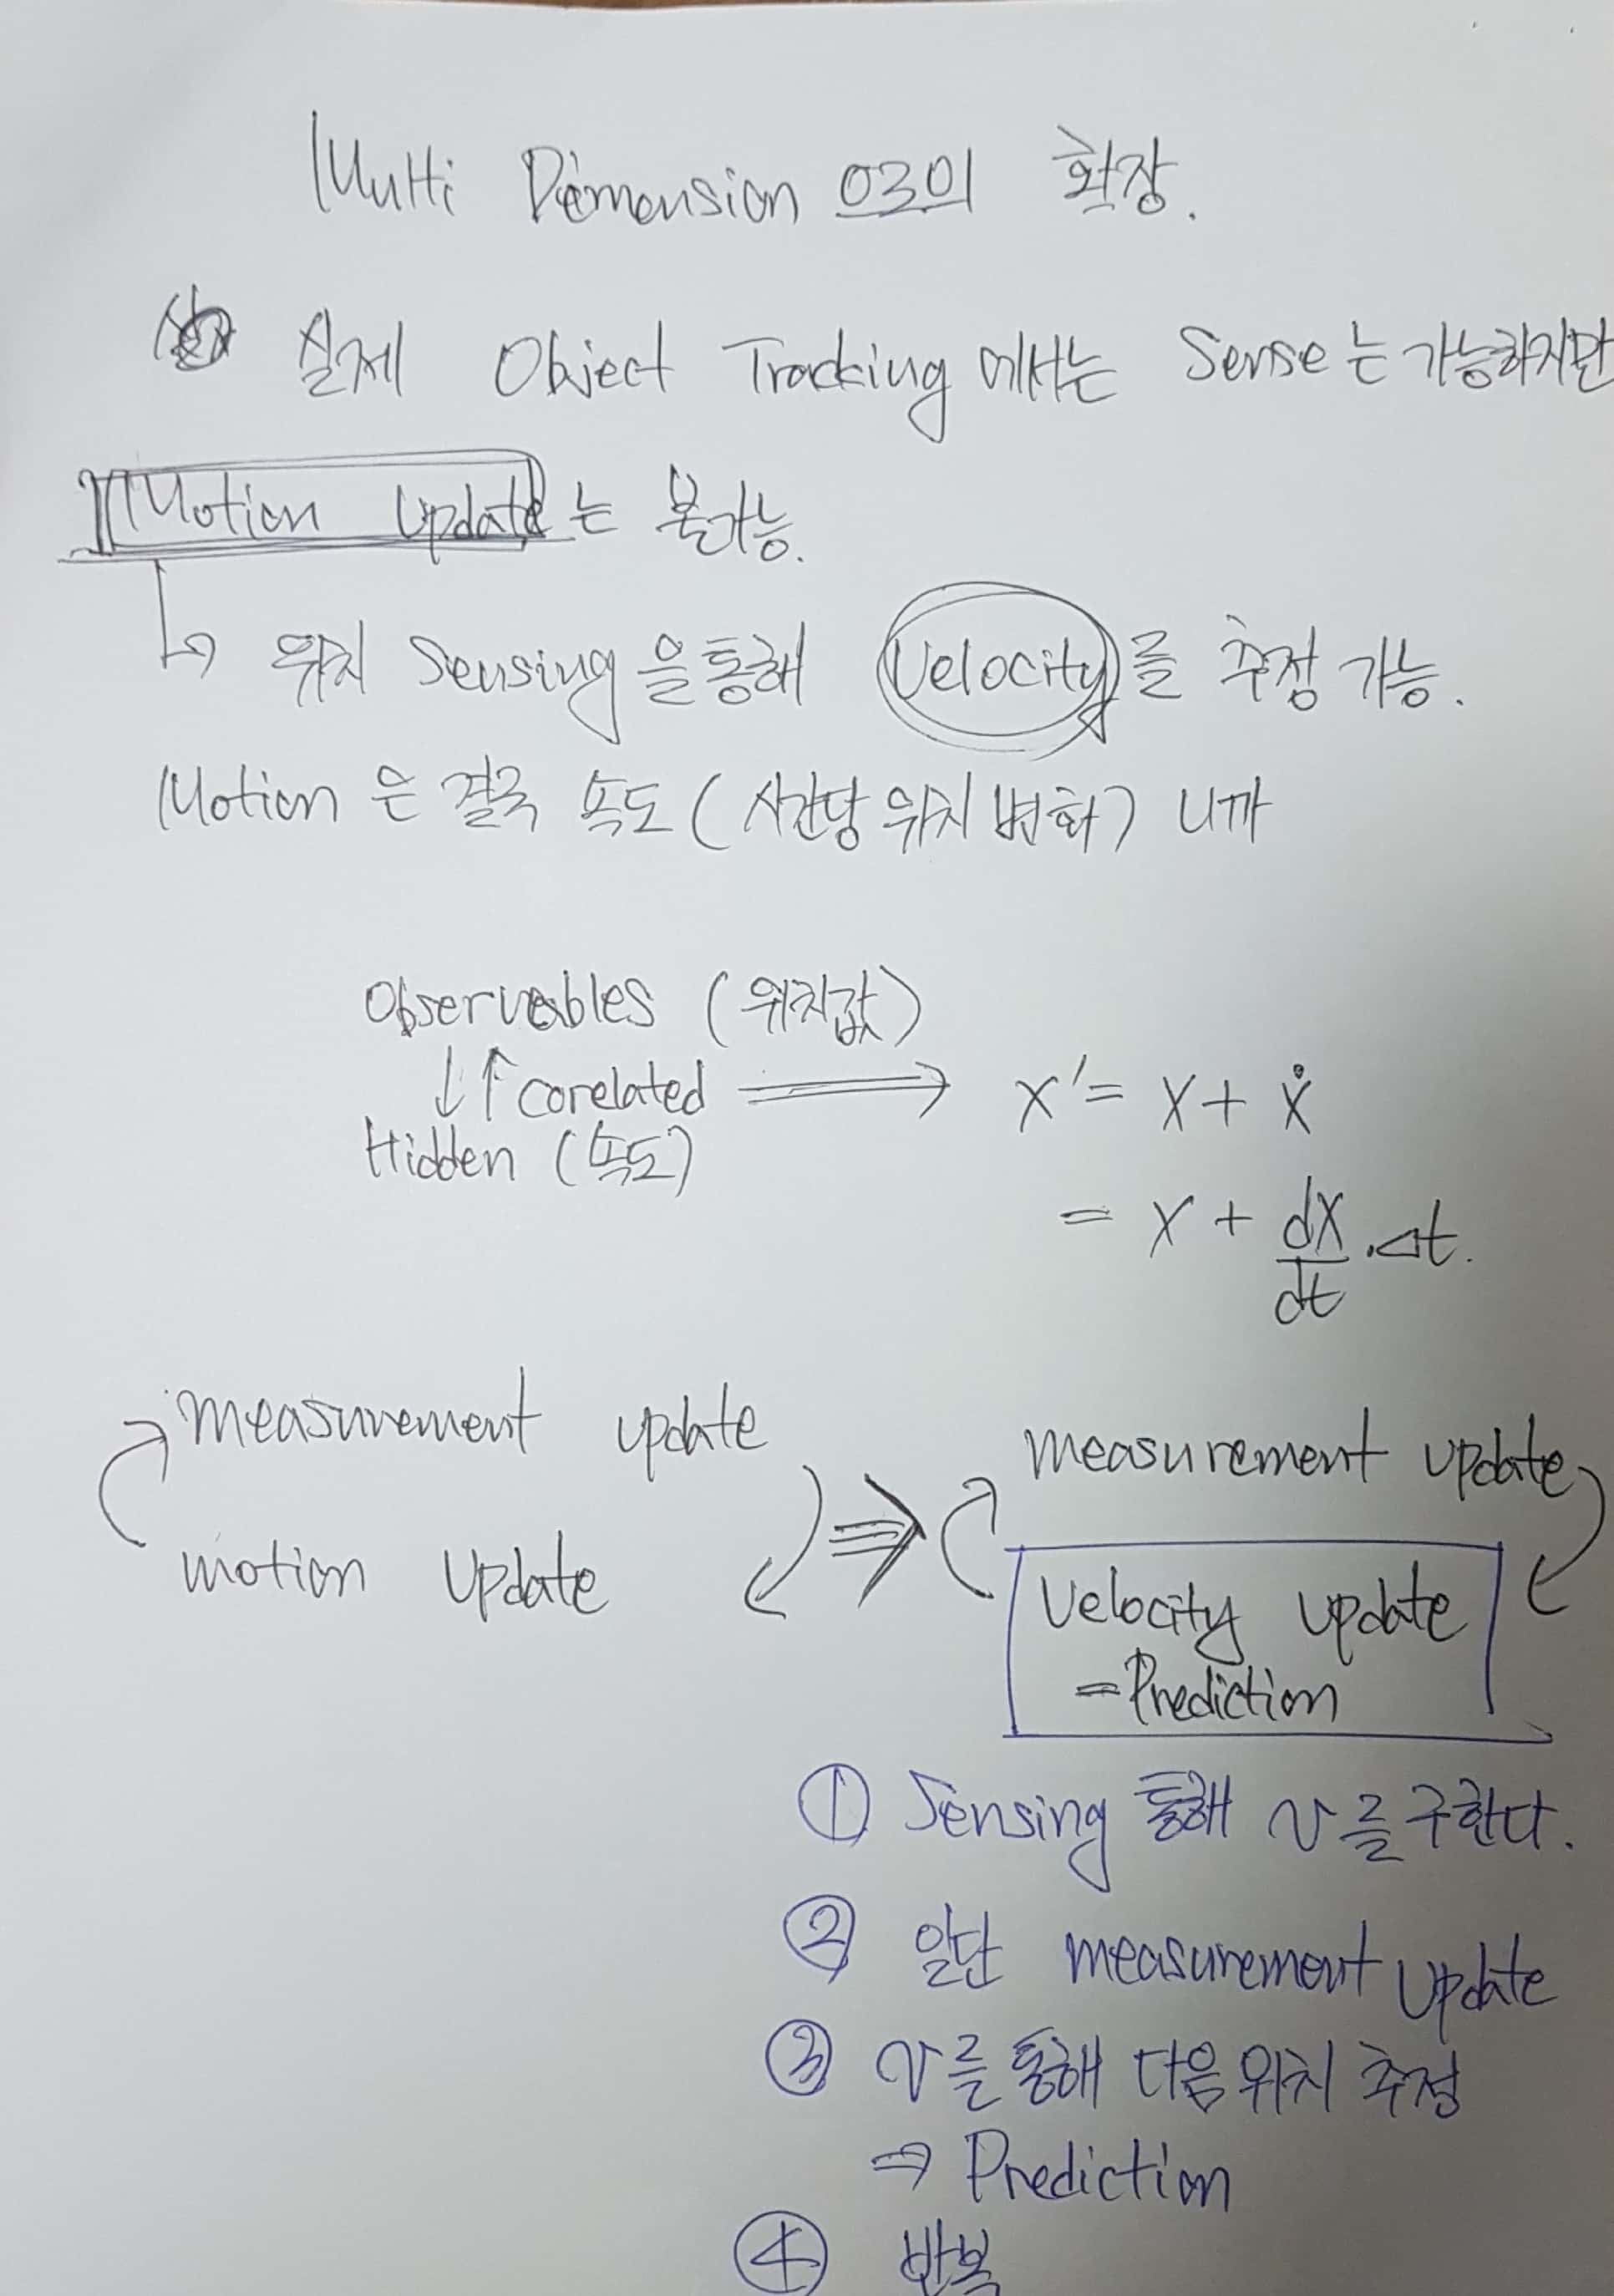 Multi Dimension 으로의 확장.
실제 Object Tracking 에서는 Sense는 가능하지만
Motion update는 불가능.
↳ 위치 Sensing을 통해 Velocity를 추정 가능.
Motion은 결국 속도 (시간당 위치 변화) 니까
Observables (위치값)
↓↑ corelated ⟹ x' = x + ẋ
Hidden (속도)
= x + dx/dt · Δt.
measurement update
motion update
⇒
measurement update
Velocity update
= Prediction
① Sensing 통해 v를 구한다.
② 일단 measurement update
③ v를 통해 다음 위치 추정
⇒ Prediction
④ 반복